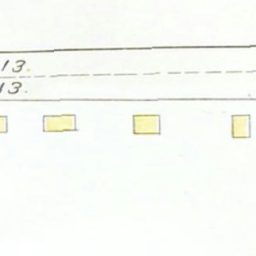 13.
13.